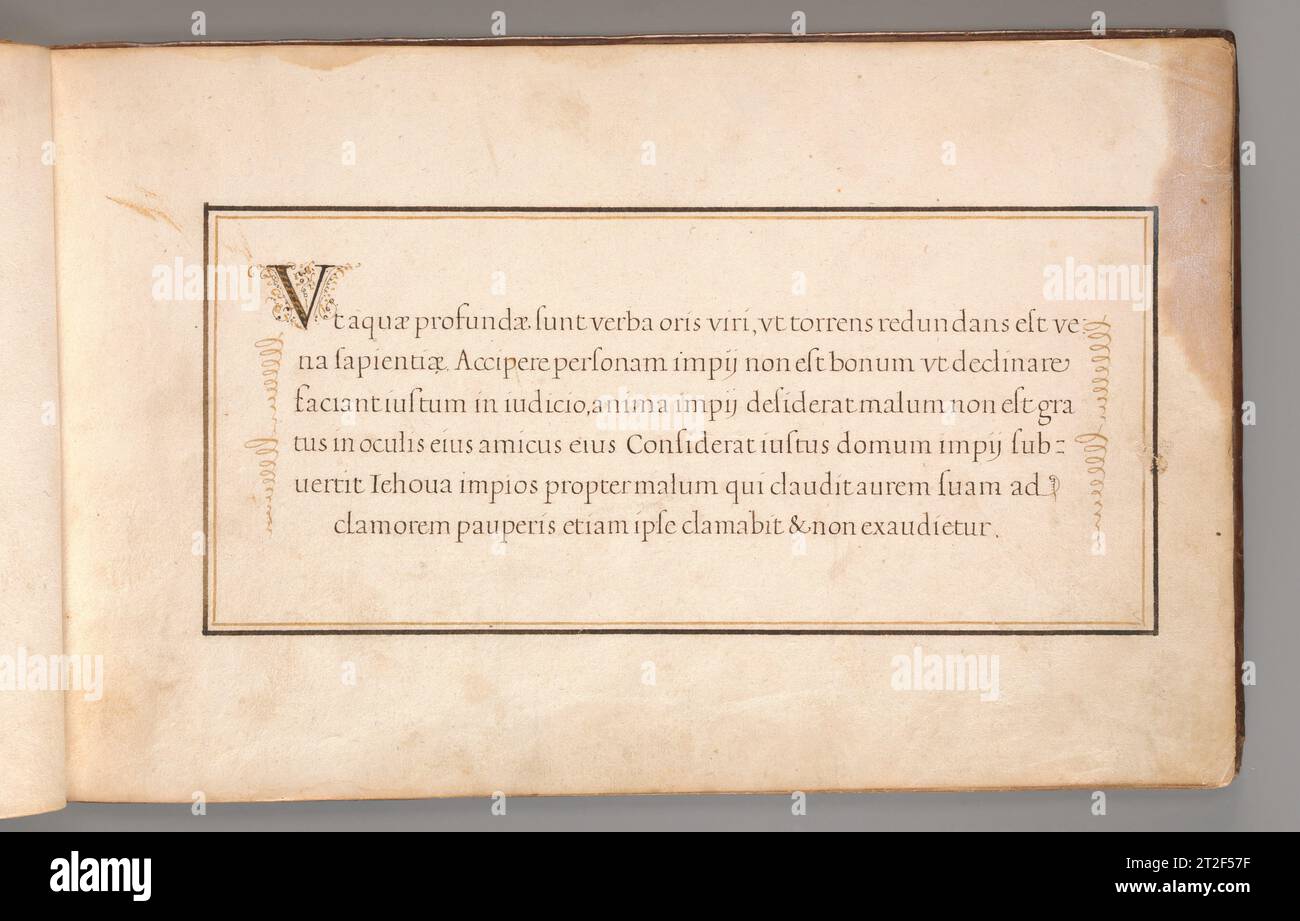 Vt aquæ profundæ. ſunt verba oris viri, vt torrens redundans eſt ve-
na ſapientiæ. Accipere perſonam impij non eſt bonum vt declinare
faciant iuſtum in iudicio, anima impij deſiderat malum non eſt gra
tus in oculis eius amicus eius Conſiderat iuſtus domum impij ſub-
uertit Iehoua impios propter malum qui claudit aurem ſuam ad
clamorem pauperis etiam ipſe clamabit & non exaudietur.
alamy
Image ID: 2T2F57F
www.alamy.com